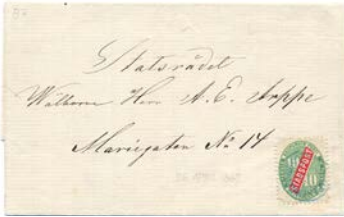 Statsrådet
Wälborne Herr A. E. Arppe
Mariegatan No 14
10 10
STADSPOST